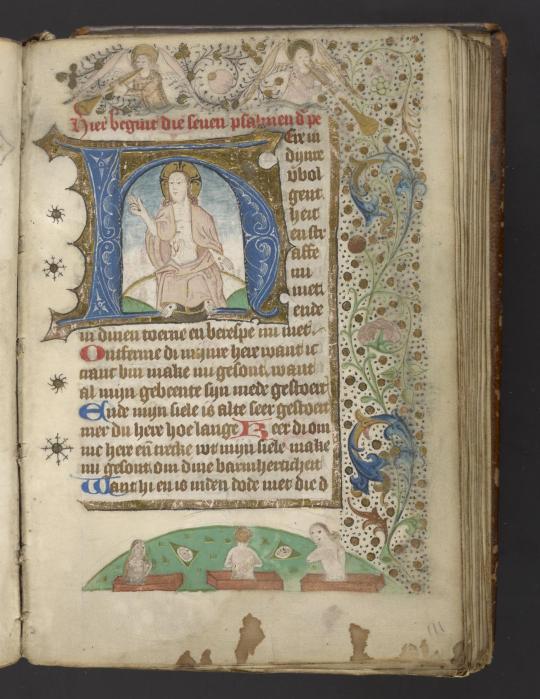 Hier begint die seuen psalmen d pe
Ere in
dijnre
v̈bol
gent
heit
en str
affe
mi
niet
ende
in dinen toerne en berespe mi niet
Ontferme di mijnre here want ic
cranc bin make mi gesont want
al mijn gebeente sijn mede gestoert
Ende mijn siele is alte seer gestoert
mer du here hoe lange Keer di om
me here en̄ trecke wt mijn siele make
mi gesont om dine barmherticheit
Want hi en is inden dode niet die d
111